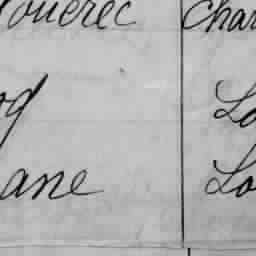 ouerec Char
og Lo
ane Lo